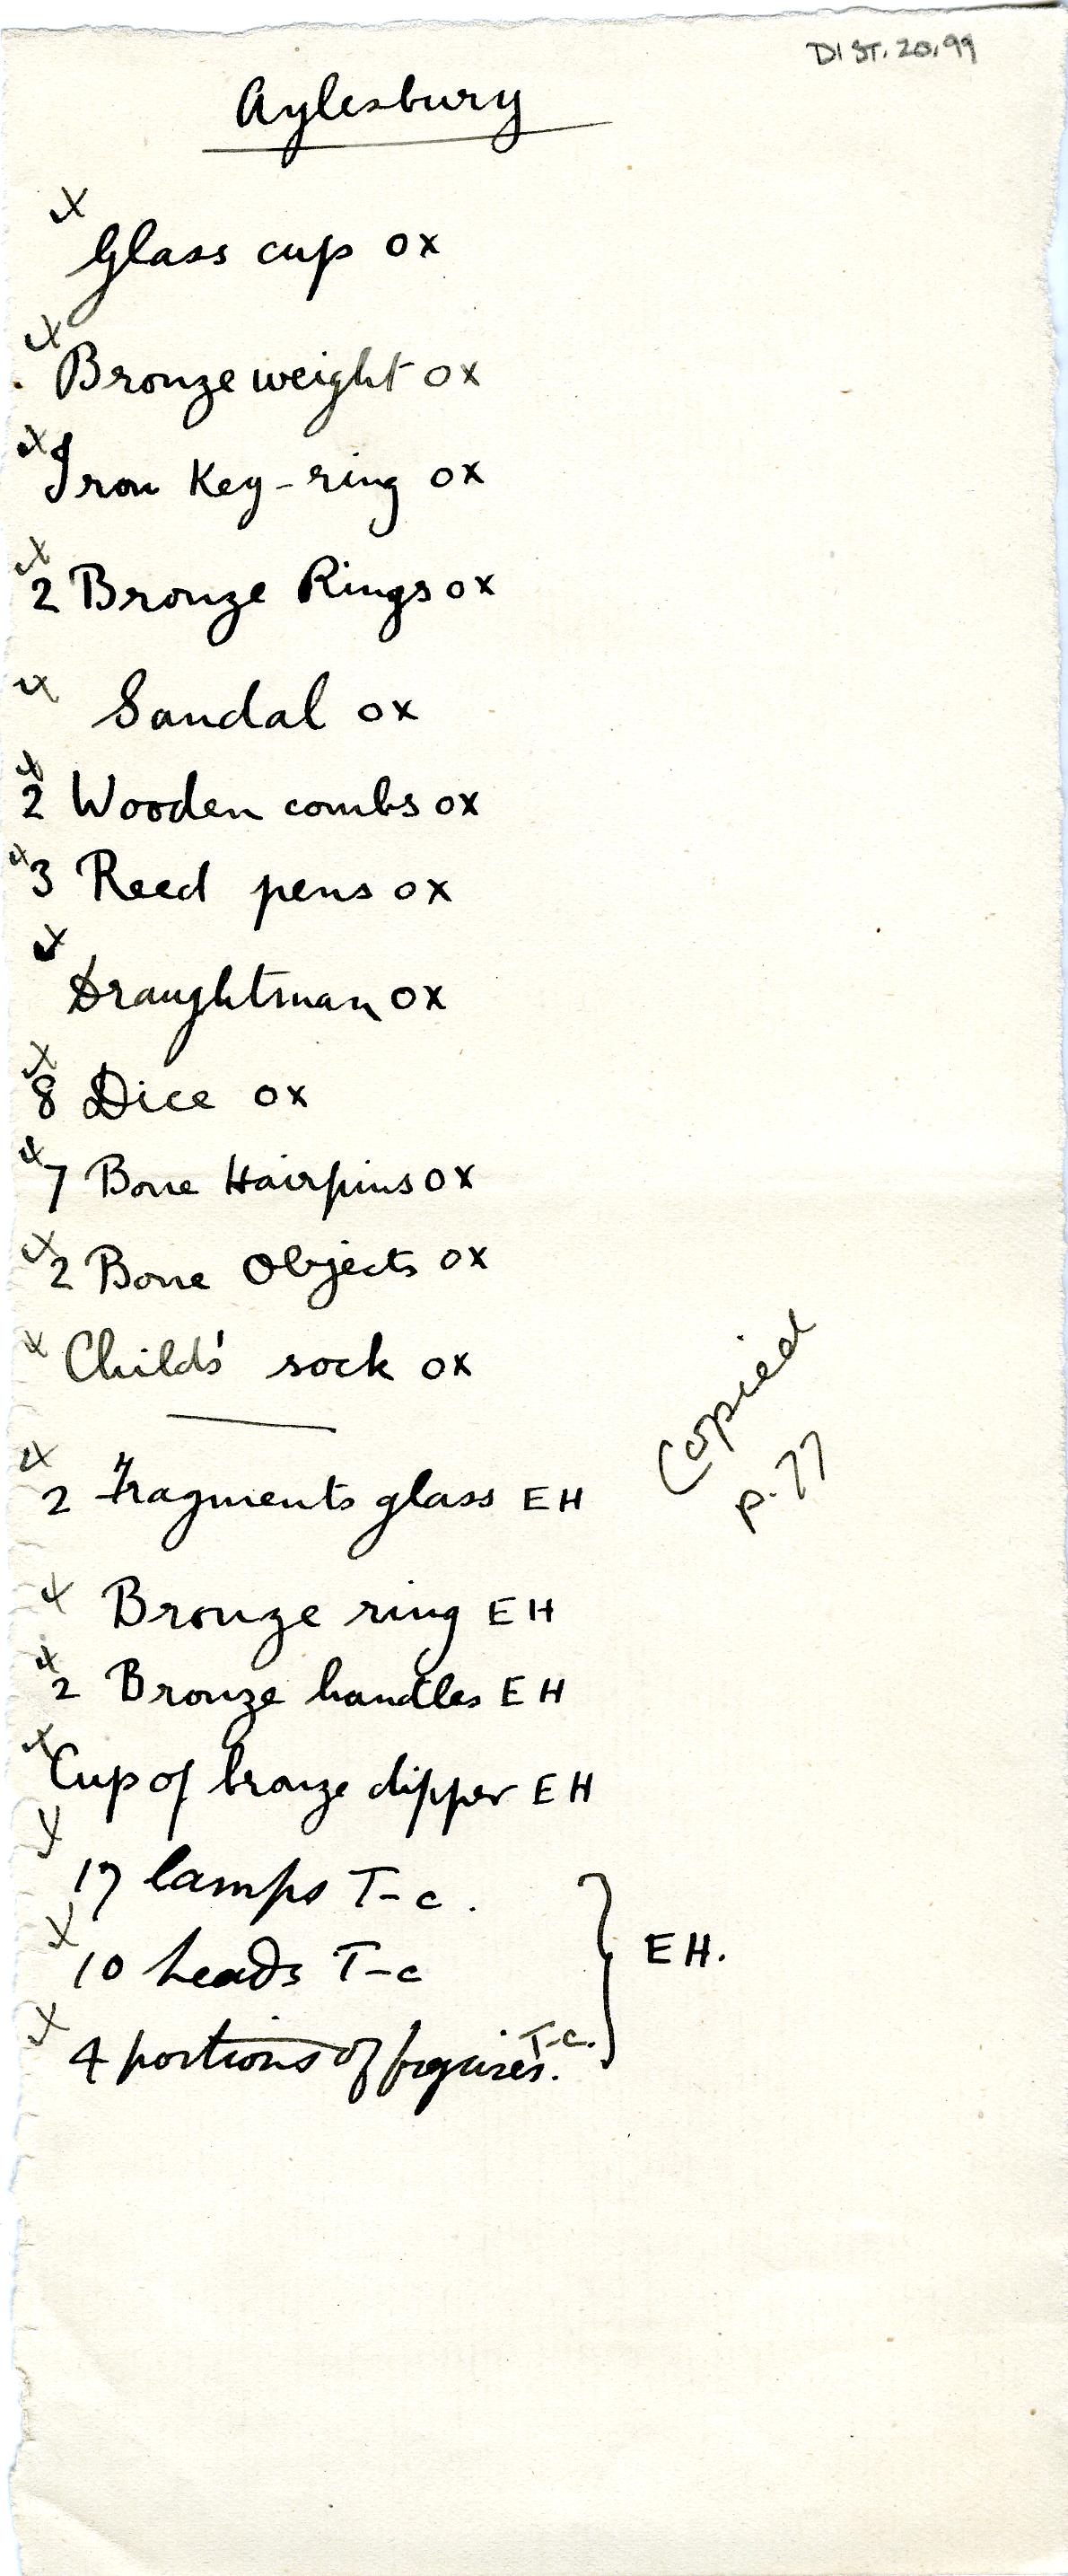 DIST. 20.99
Aylesbury
Glass cup OX
Bronze weight OX
Iron Key-ring OX
2 Bronze Rings OX
Sandal OX
2 Wooden combs OX
3 Reed pens OX
Draughtman OX
8 Dice OX
7 Bone Hairpins OX
2 Bone Objects OX
Child's sock OX
Copied
p.77
2 Fragments glass EH
Bronze ring EH
2 Bronze handles EH
Cup of bronze dipper EH
17 lamps T-c.
10 heads T-c
EH.
4 portions of figures. T-c.